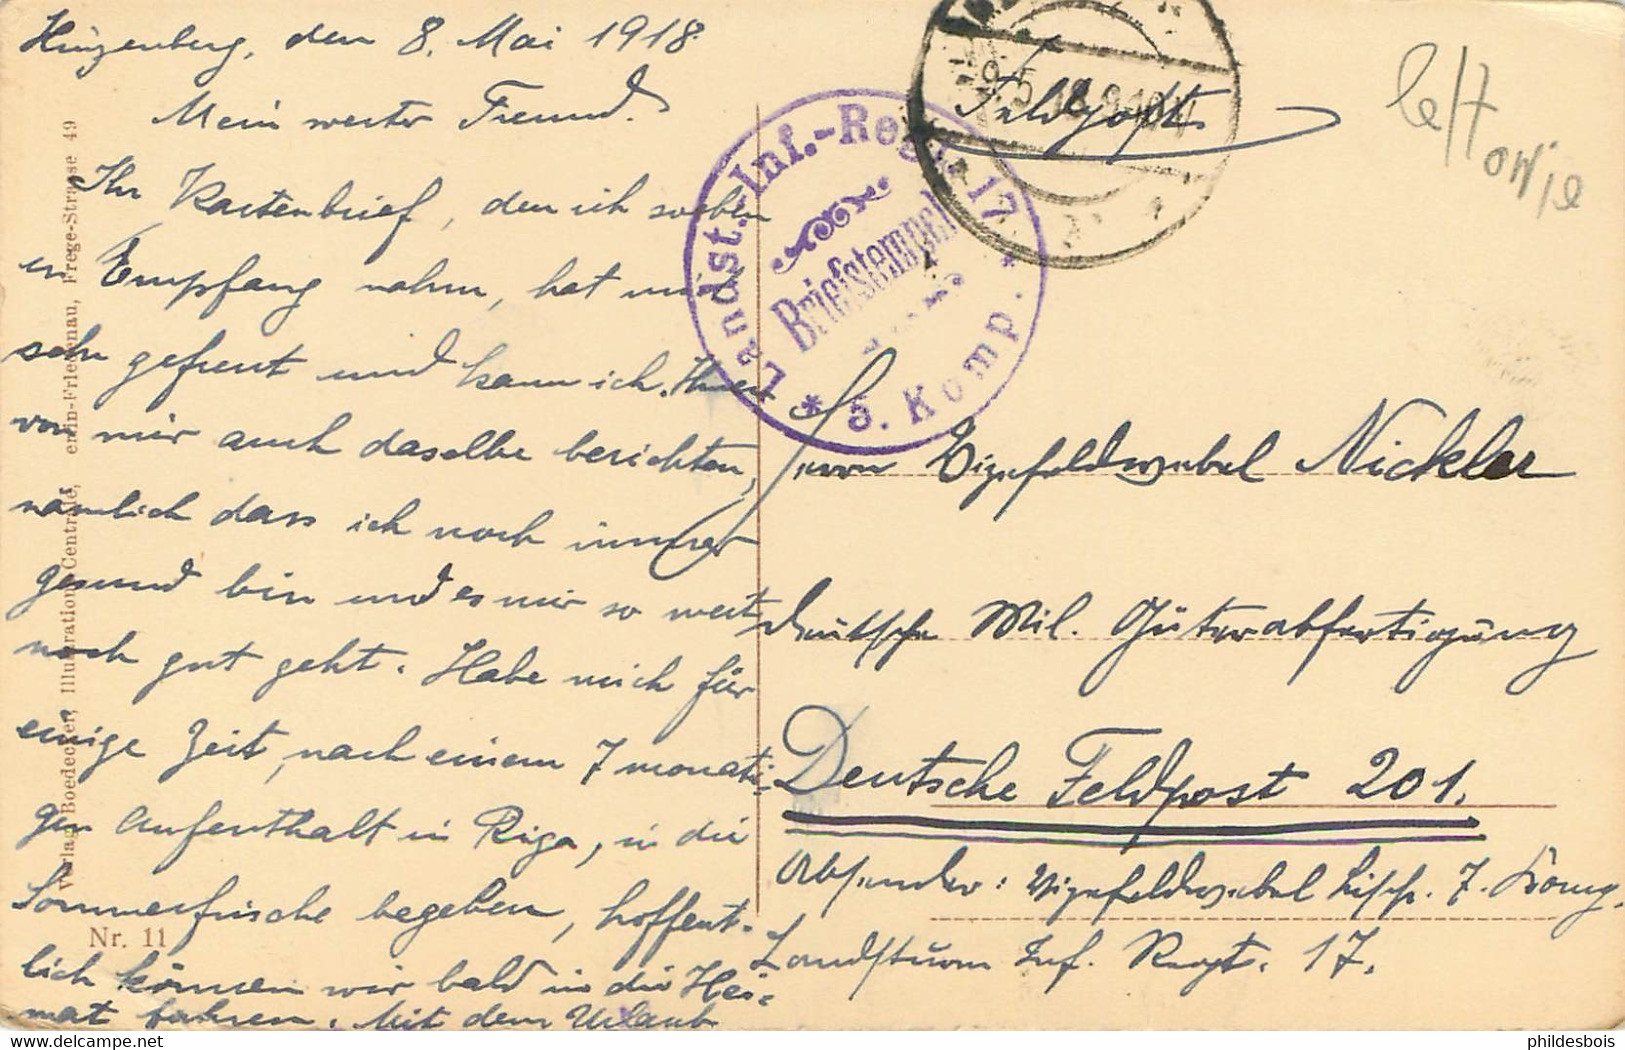 Hinzenberg, den 8. Mai 1918
Mein werter Freund!
Ihr Kartenbrief, den ich soeben
in Empfang nahm, hat mich
sehr gefreut und kann ich Ihnen
von mir auch daselbe berichten,
nämlich dass ich noch immer
gesund bin und es mir so weit
noch gut geht. Habe mich für
einige Zeit, nach einem 7 monati-
gen Aufenthalt in Riga, in die
Sommerfrische begeben, hoffent-
lich können wir bald in die Hei-
mat fahren. Mit dem Urlaub
Verlag Boedecker, Illustrations Centrale, Berlin-Friedenau, Frege-Strasse 49
Nr. 11
Landst.-Inf.-Reg. 17.
Briefstempel
* 5. Komp. *
9.5.18.9-10
Feldpost.
Herrn Vizefeldwebel Nickler
Deutsche Mil. Güterabfertigung
Deutsche Feldpost 201.
Absender: Vizefeldwebel 7. Komp.
Landsturm Inf. Regt. 17.
phildesbois